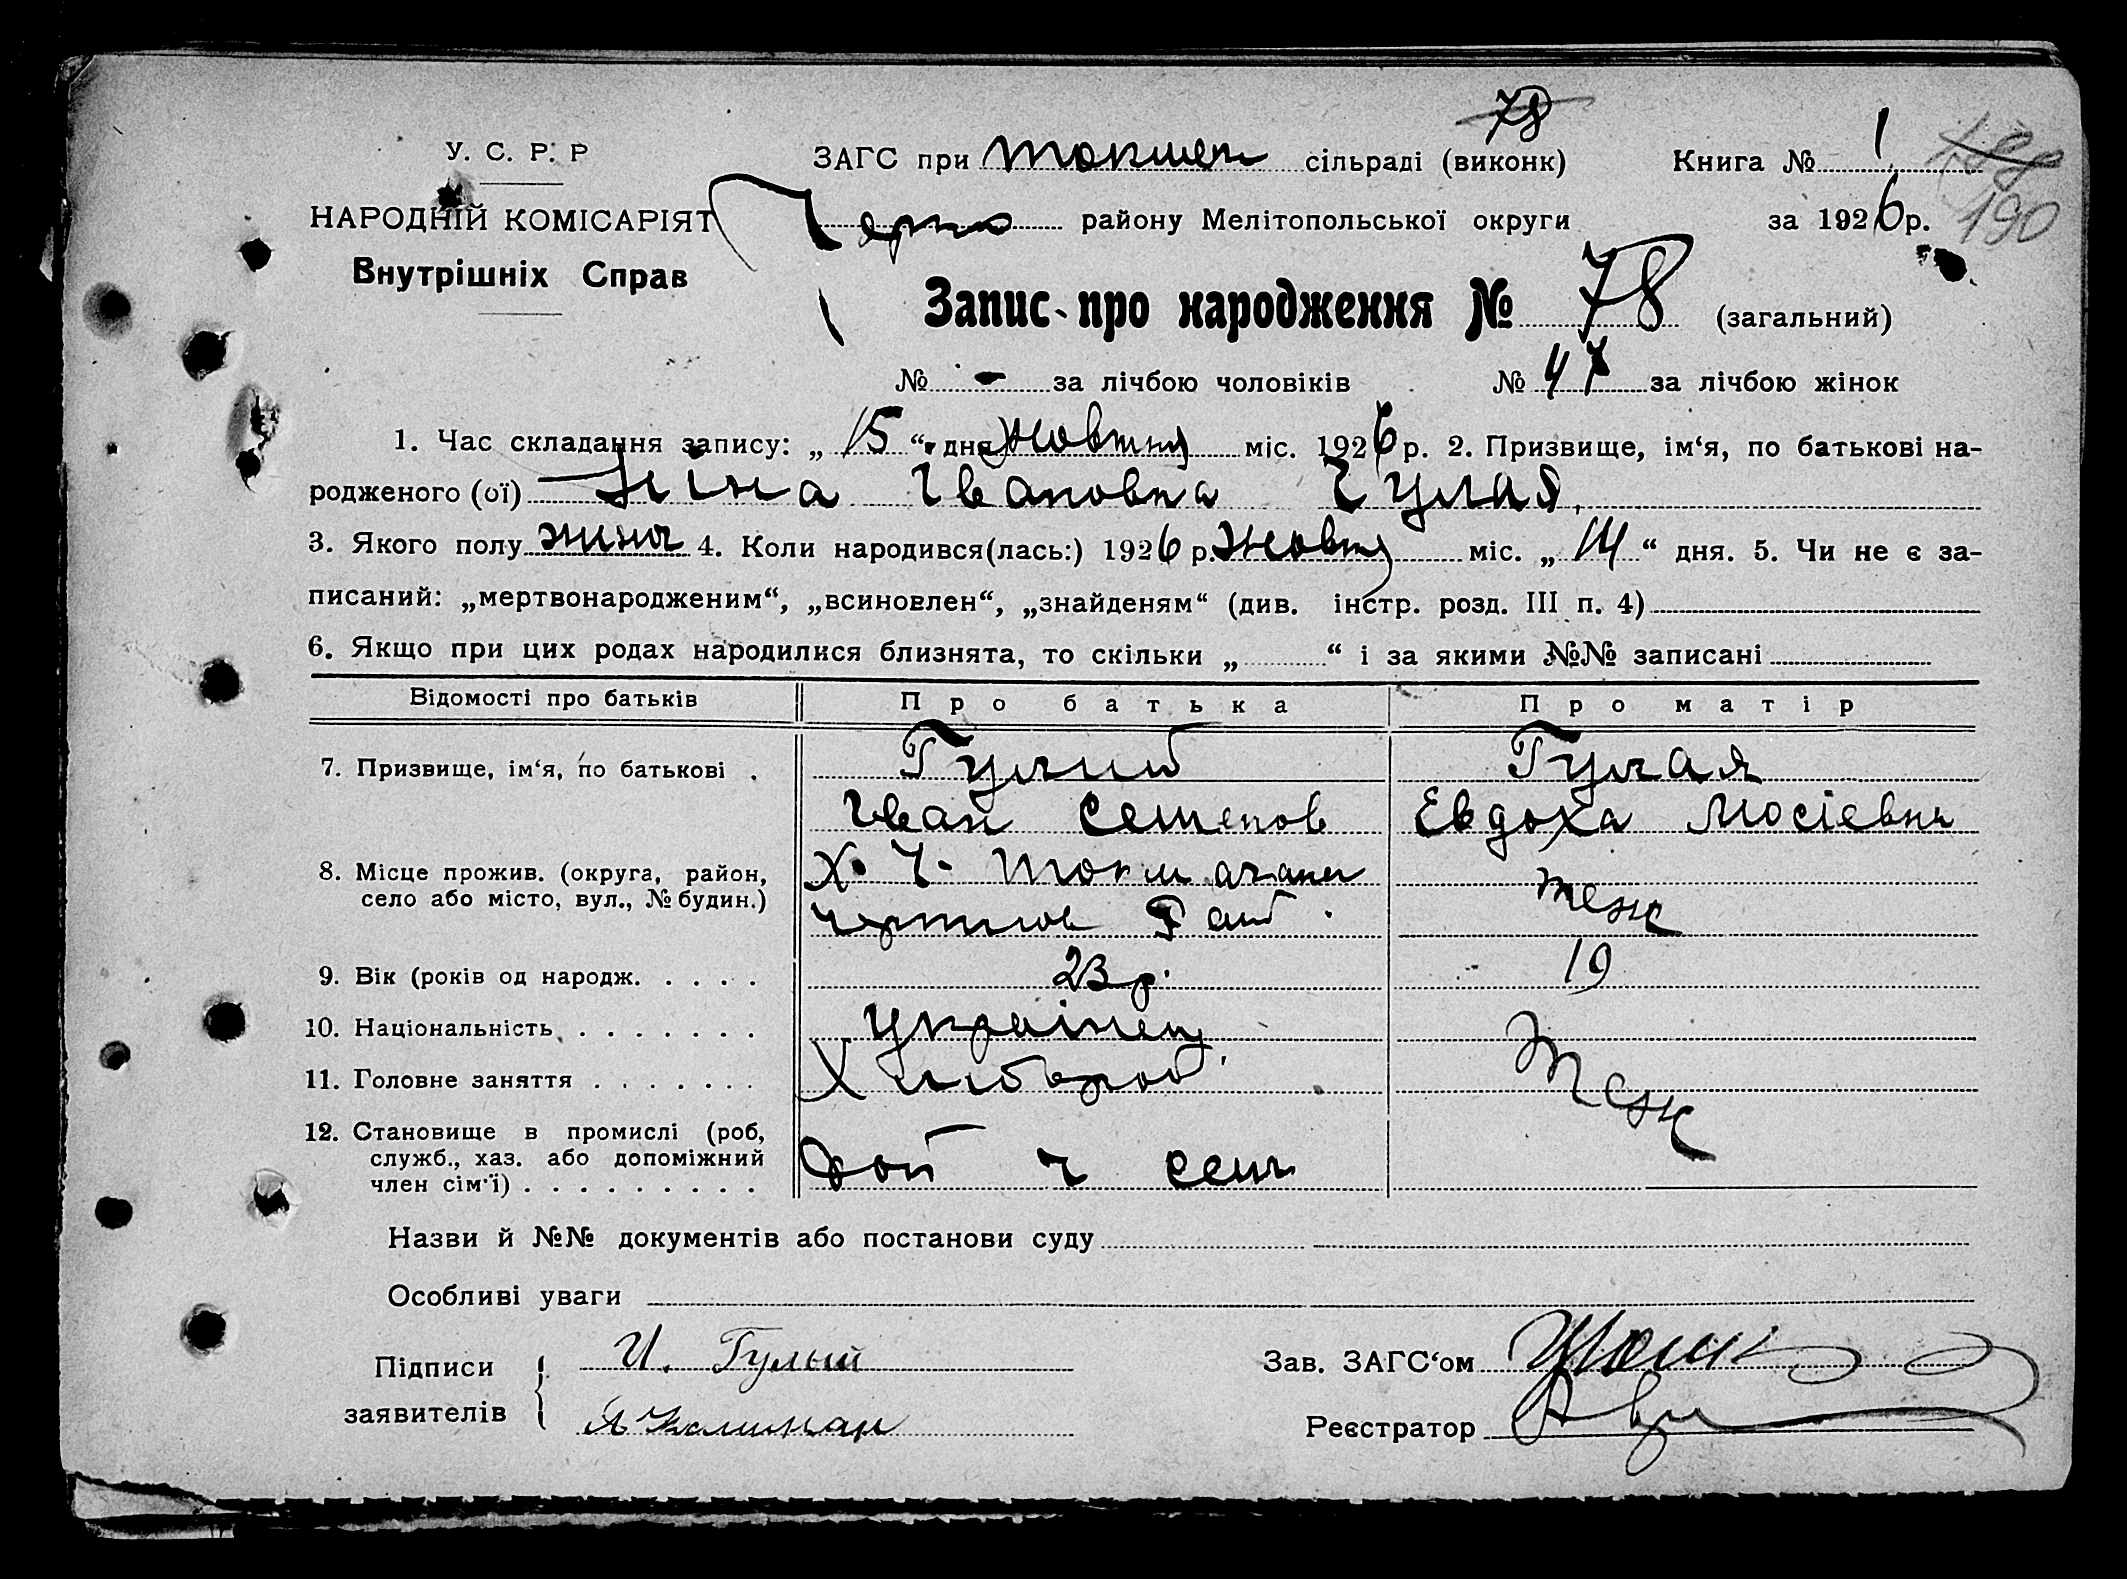 78
У. С. Р. Р ЗАГС при сільраді (виконк) Книга № 1
190
НАРОДНІЙ КОМІСАРІЯТ району Мелітопольської округи за 1926 р.
Внутрішніх Справ
Запис про народження № 78 (загальний)
№ - за лічбою чоловіків № 47 за лічбою жінок
1. Час складання запису: „15“ дня жовтня міс. 1926 р. 2. Призвище, ім‘я, по батькові на-
родженого (ої) Ніна Івановна Гулая,
3. Якого полу жиноч 4. Коли народився(лась:) 1926 р. жовтня міс. „14“ дня. 5. Чи не є за-
писаний: „мертвонародженим“, „всиновлен“, „знайденям“ (див. інстр. розд. III п. 4)
6. Якщо при цих родах народилися близнята, то скільки „ “ і за якими №№ записані
Відомості про батьків Про батька Про матір
7. Призвище, ім‘я, по батькові . Гулий Гулая
Іван Семенов Евдоха Мосієвна
8. Місце прожив. (округа, район, Х. Ч.
село або місто, вул., № будин.) теж
9. Вік (років од народж. . . . . 23 р. 19
10. Національність . . . . . . . українец
11. Головне заняття . . . . . . . Хлібороб теж
12. Становище в промислі (роб,
служб., хаз. або допоміжний
член сім‘ї) . . . . . . . . . доп ч сем
Назви й №№ документів або постанови суду
Особливі уваги
Підписи И. Гулый Зав. ЗАГС‘ом
заявителів Реєстратор